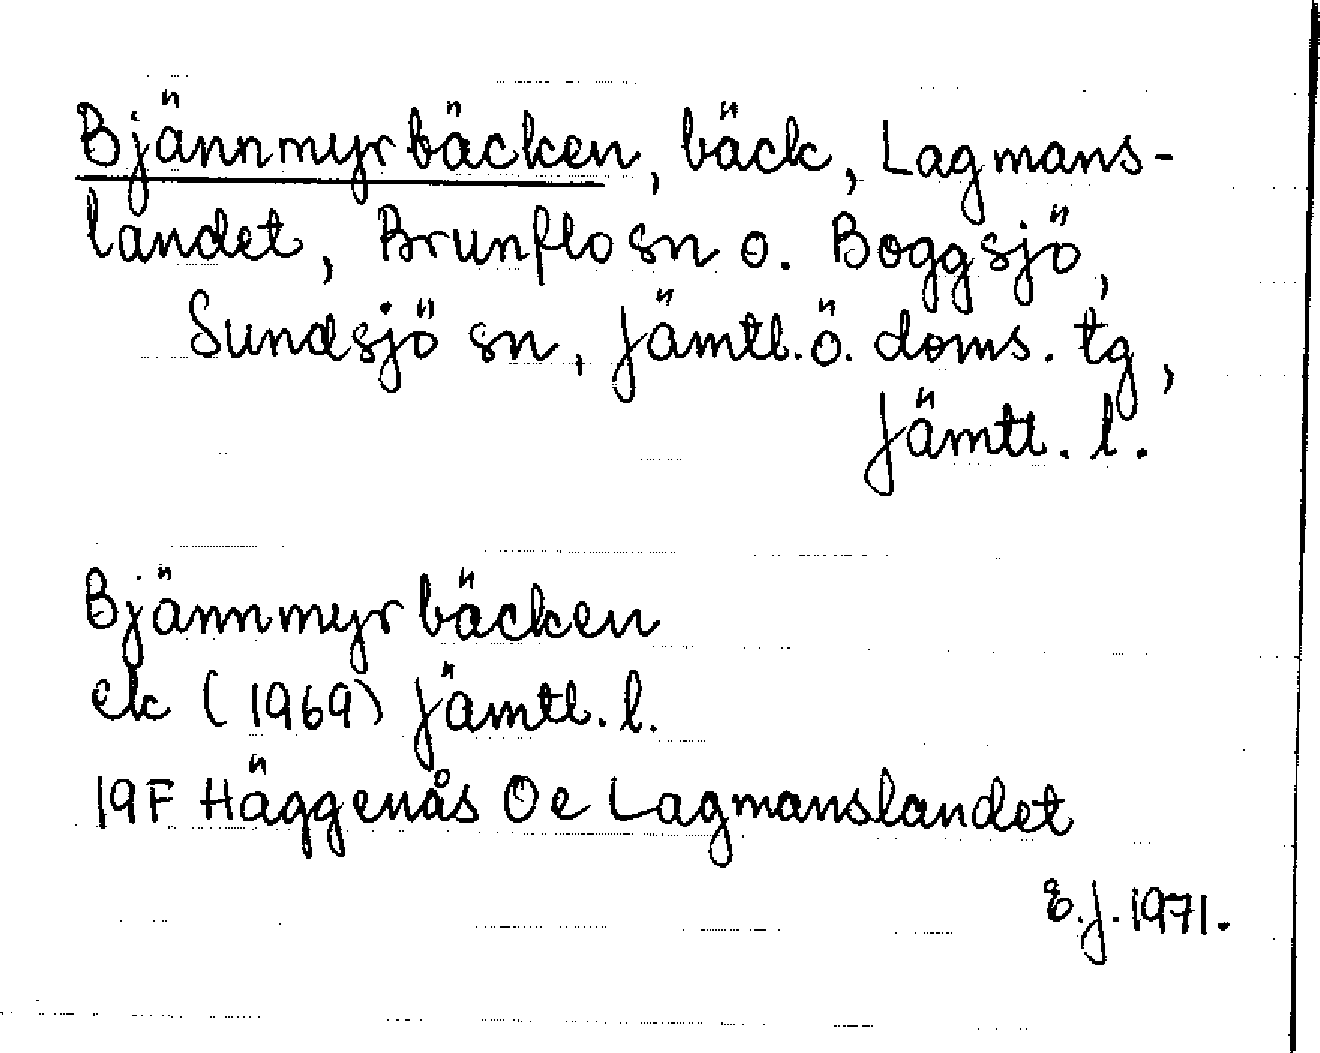 Bjännmyrbäcken, bäck, Lagmans-
landet, Brunflo sn o. Boggsjö,
Sundsjö sn, Jämtl. ö. doms. tg,
Jämtl. l.
Bjännmyrbäcken
ek (1969) Jämtl. l.
19F Häggenås 0e Lagmanslandet
E.J. 1971.